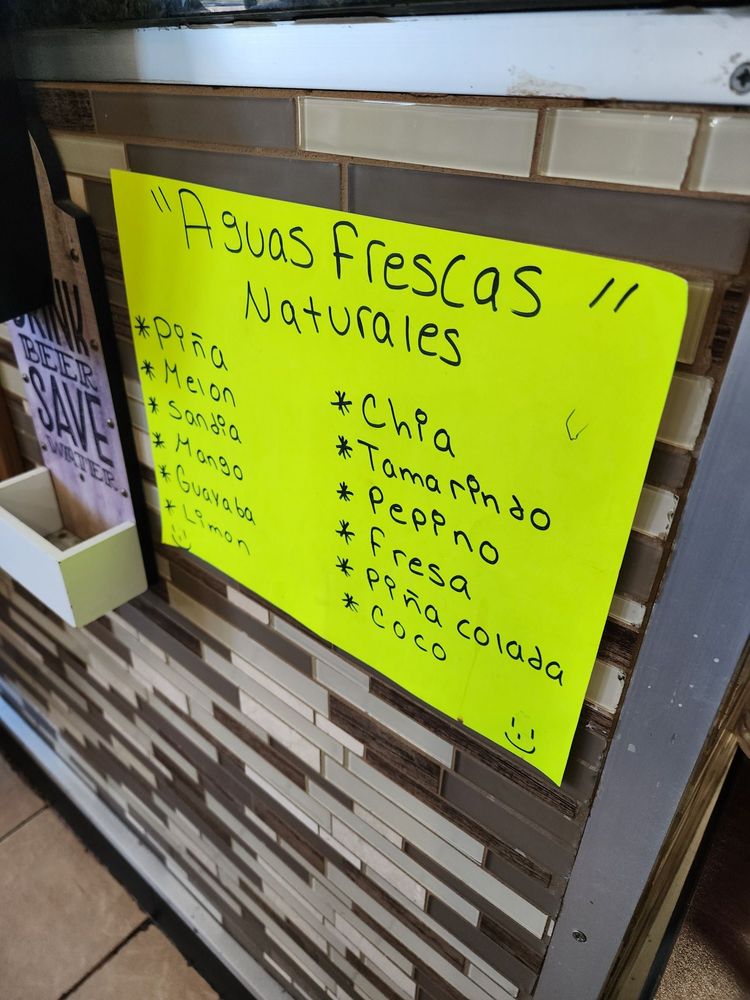 "Aguas frescas"
Naturales
* Piña
* Melon
* Sandia
* Mango
* Guayaba
* Limon
* Chia
* Tamarindo
* Pepino
* fresa
* Piña colada
* Coco
DRINK
BEER
SAVE
WATER